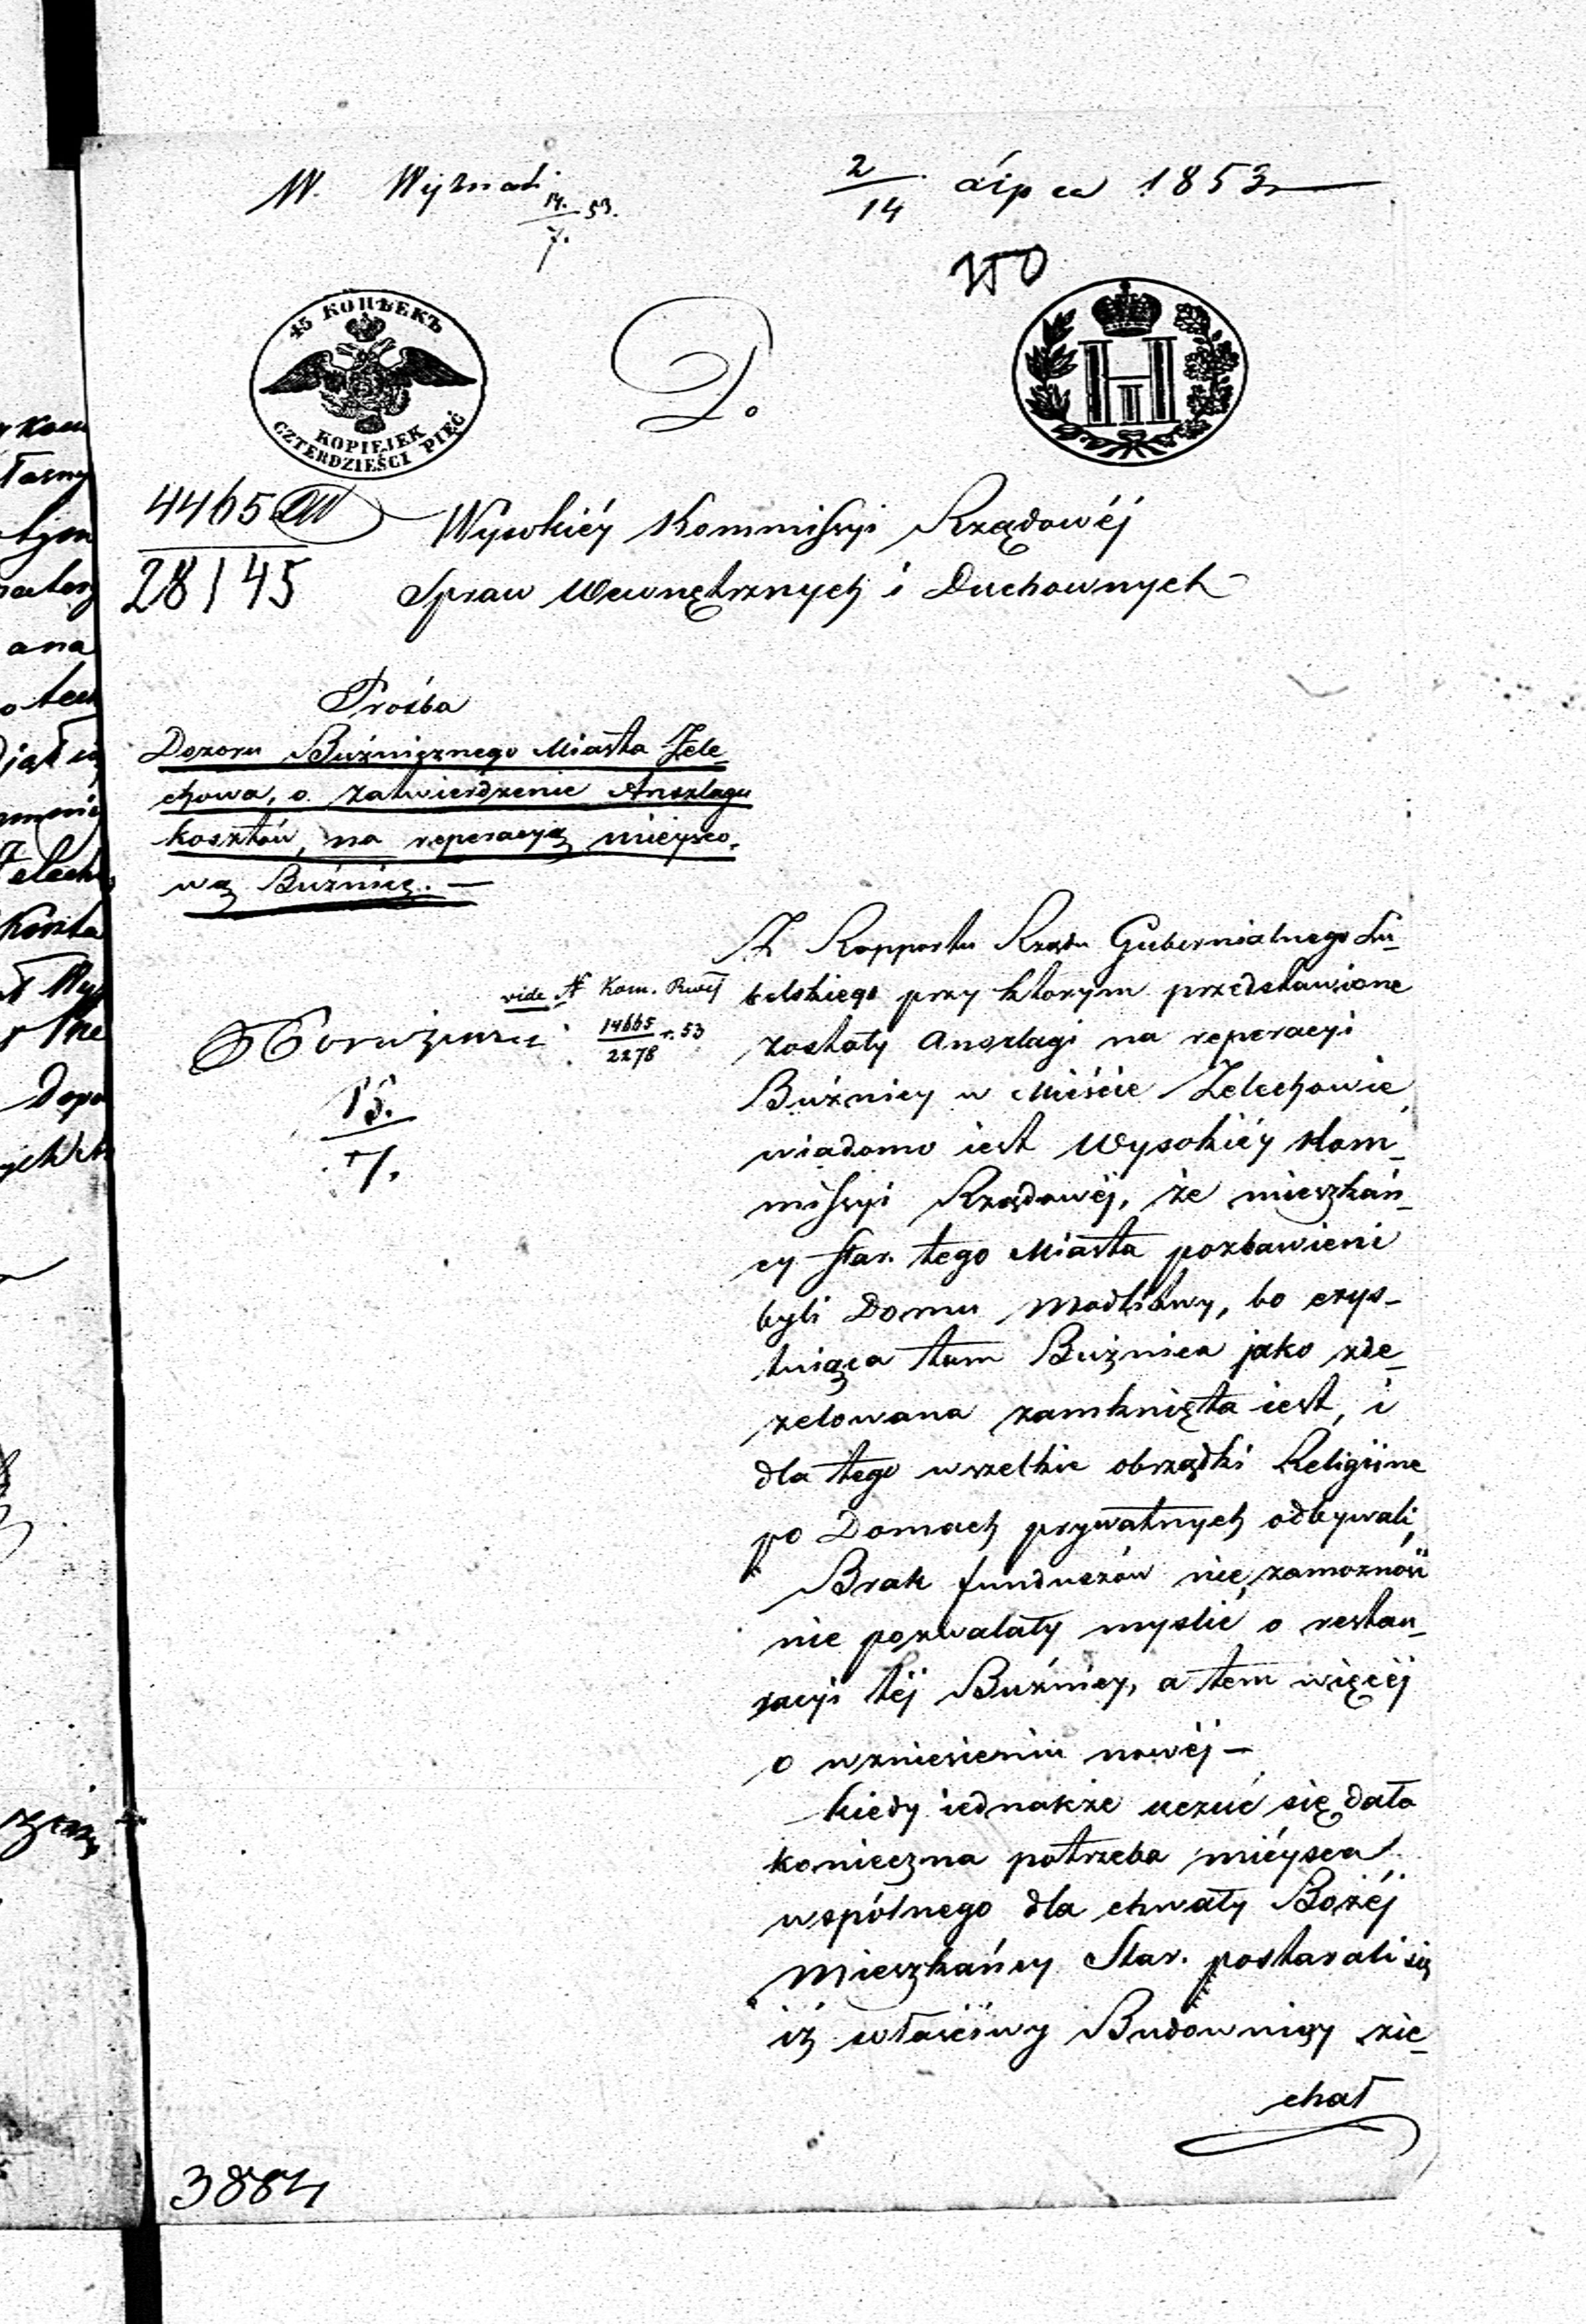 W.
14. 53.
7.
2/14 Lipca 1853
45 КОПѢЕКЪ
KOPIEJEK
CZTERDZIEŚCI PIĘĆ
D.
H I
4465
28145
Wysokiéy Kommissyi Rządowéj
Spraw Wewnętrznych i Duchownych
Prośba
Dozoru Buźnicznego Miasta Żele
chowa, o zatwierdzenie Anszlagu
kosztów, na reperacyą mieysco-
wą Buźnicę. —
vide N Kom. Rwéj
14665/2278 r. 53
15.
7.
Z Rapportu Rządu Gubernialnego Lu-
belskiego przy ktorym przedstawione
zostały Anszlagi na reperacyi
Buźnicy w Mieście Żelechowie,
wiadomo iest Wysokiéy Kom-
missyi Rządowéj, że mieszkań-
cy Star. tego Miasta pozbawieni
byli Domu Modlitwy, bo exys-
tuiąca tam Buźnica jako zde-
zelowana zamknięta iest, i
dla tego wszelkie obrządki Religiine
po Domach prywatnych odbywali,
Brak funduszów nie zamożność
nie pozwalały myslić o restau-
racyi téj Buźnicy, a tem więcéj
o wzniesieniu nowéj —
kiedy iednakże uczuć się dała
konieczna potrzeba miéysca
wspólnego dla chwały Bożéj
Mieszkańcy Star. postarali się
iż właściwy Budowniczy zie-
chał
3884